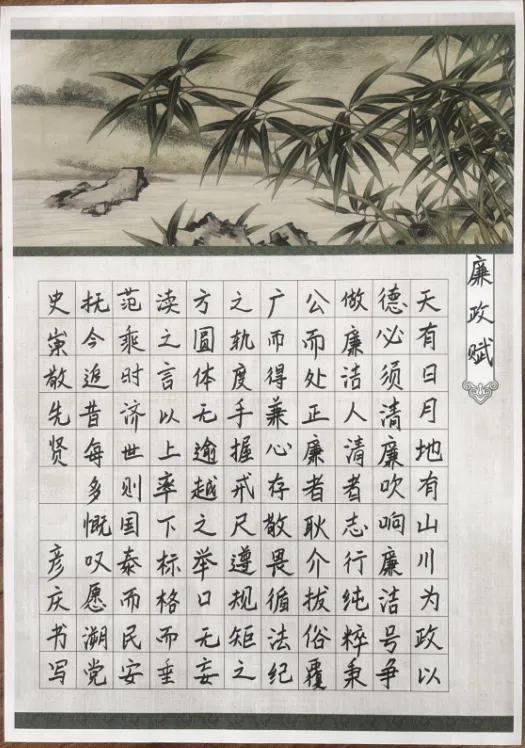 廉政赋
天有日月地有山川为政以
德必须清廉吹响廉洁号争
做廉洁人清者志行纯粹秉
公而处正廉者耿介拔俗覆
广而得兼心存敬畏循法纪
之轨度手握戒尺遵规矩之
方圆体无逾越之举口无妄
渎之言以上率下标格而垂
范乘时济世则国泰而民安
抚今追昔每多慨叹愿溯党
史崇敬先贤
彦庆书写